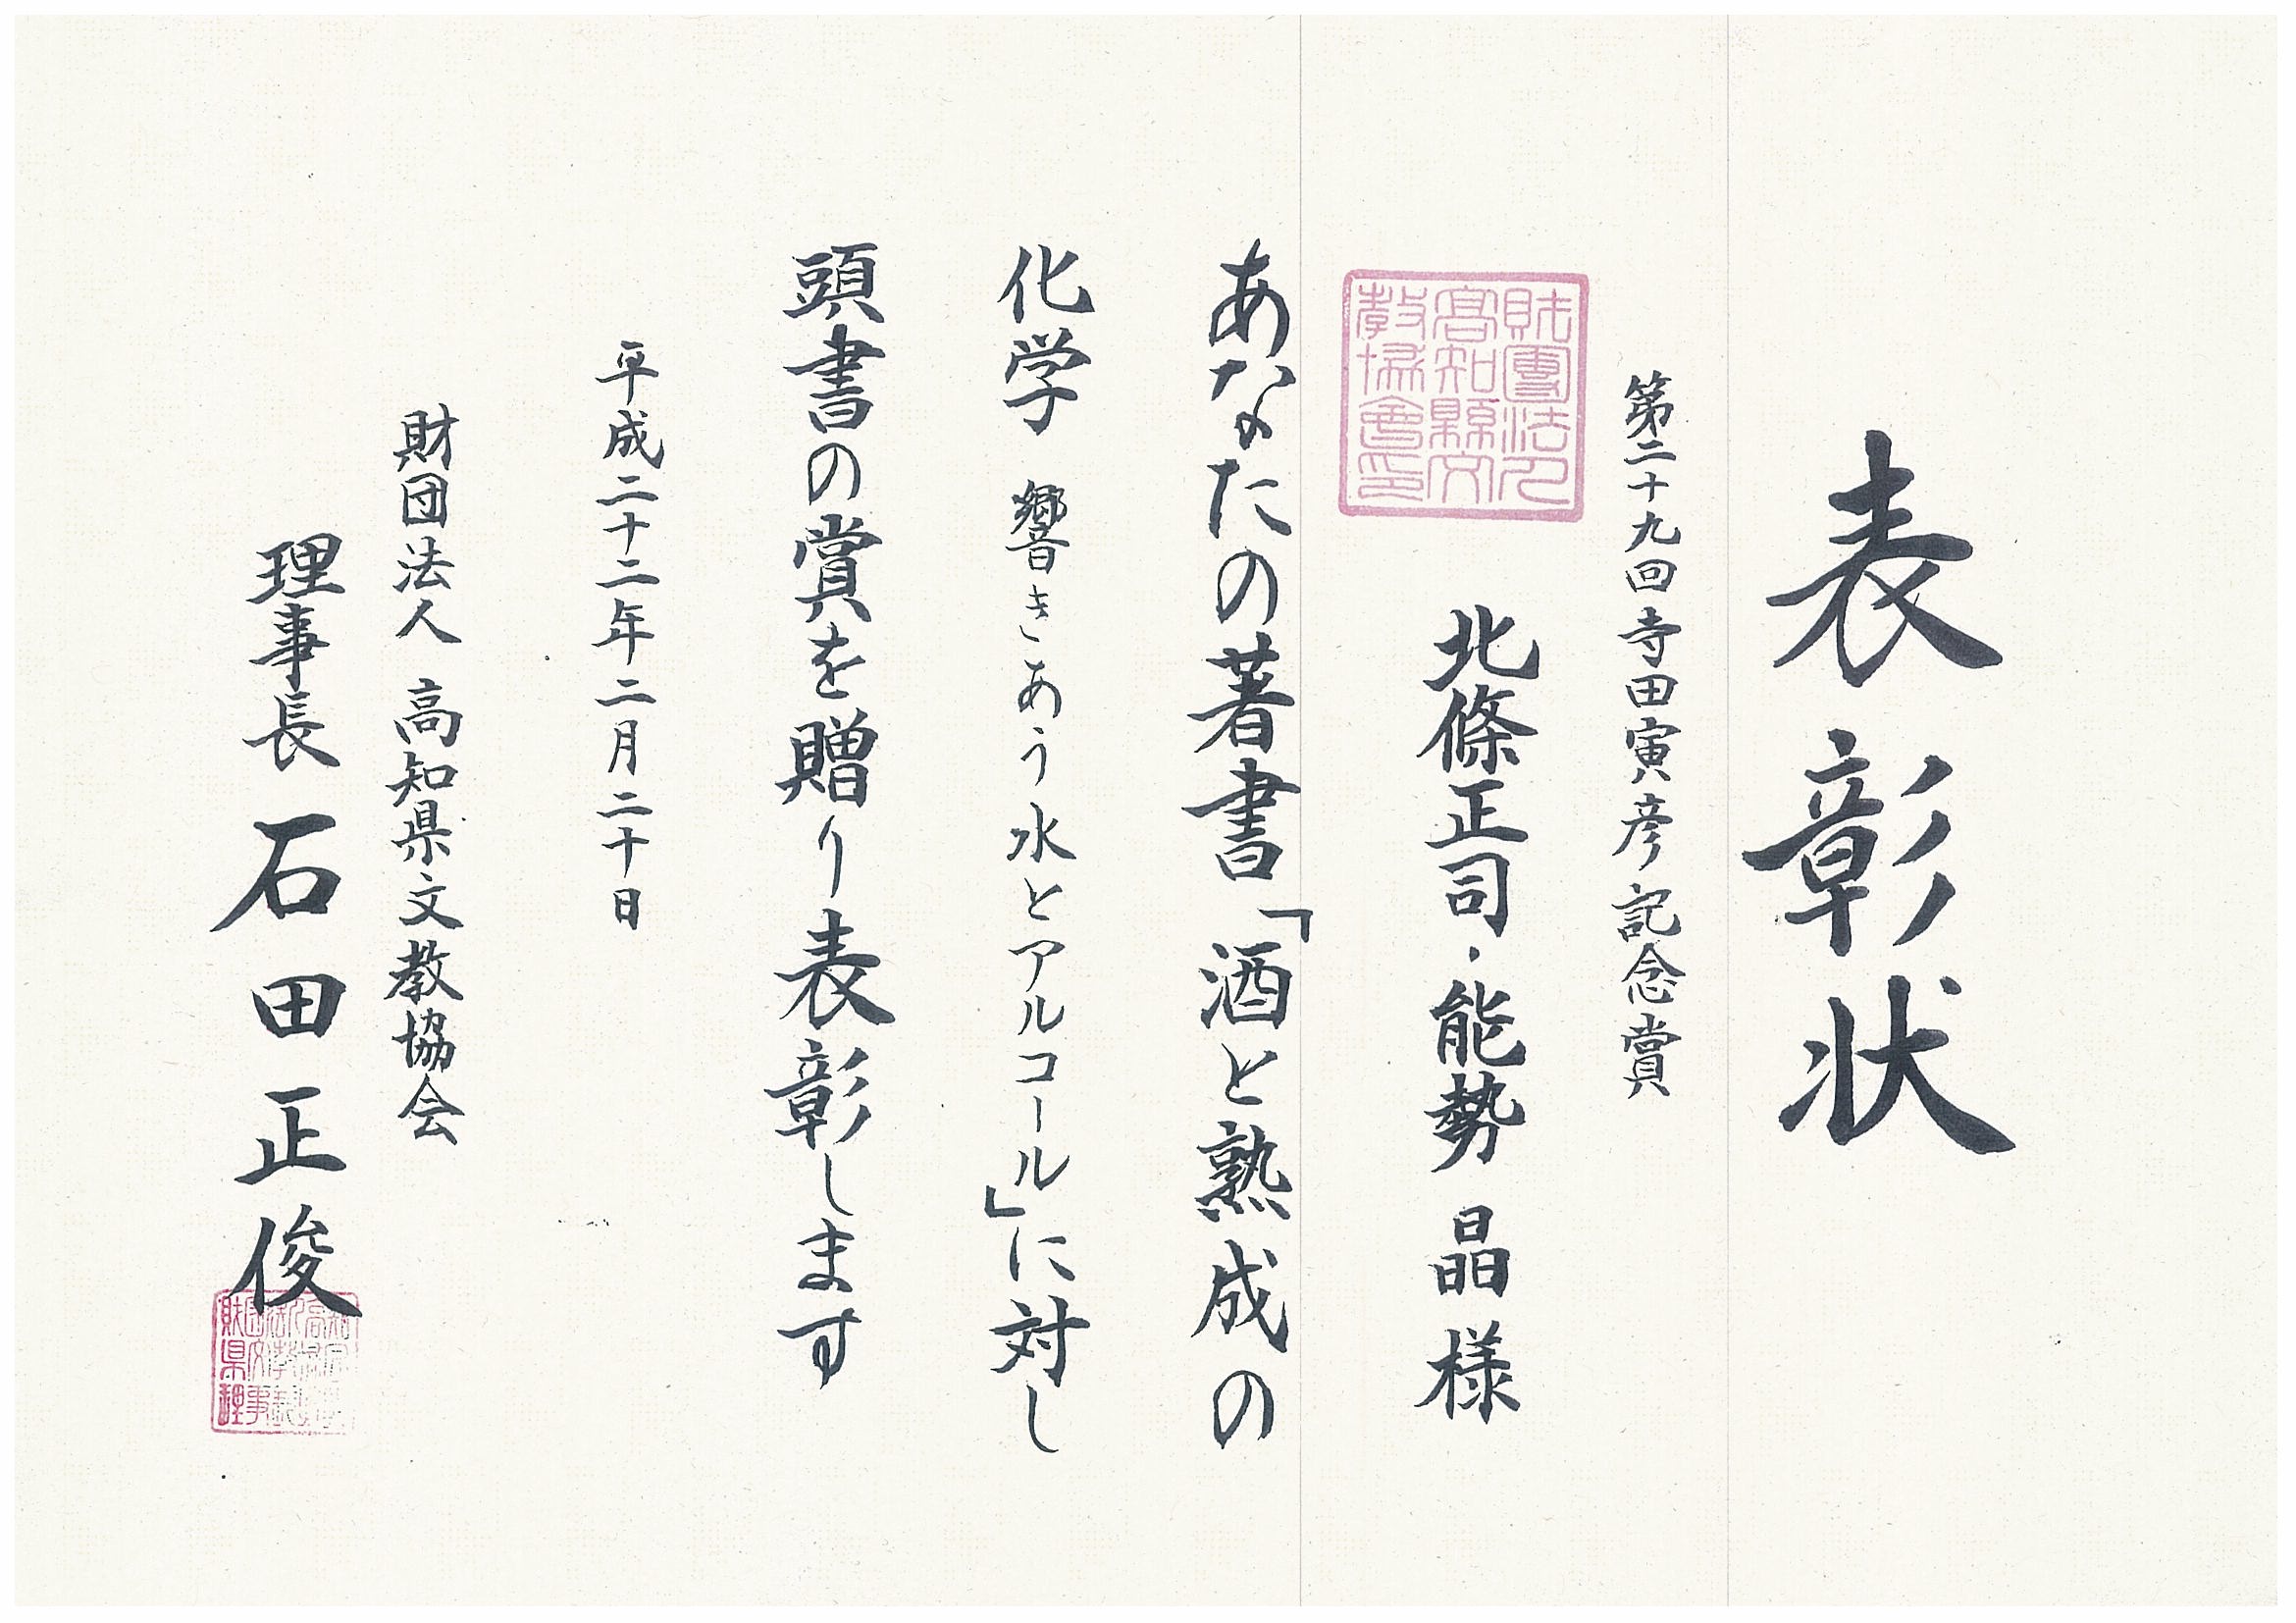 表彰状
第二十九回寺田寅彦記念賞
財團法人
高知縣文
教協會印
北條正司・能勢 晶 様
あなたの著書「酒と熟成の
化学 響きあう水とアルコール」に対し
頭書の賞を贈り表彰します
平成二十二年二月二十日
財団法人 高知県文教協会
理事長 石田正俊